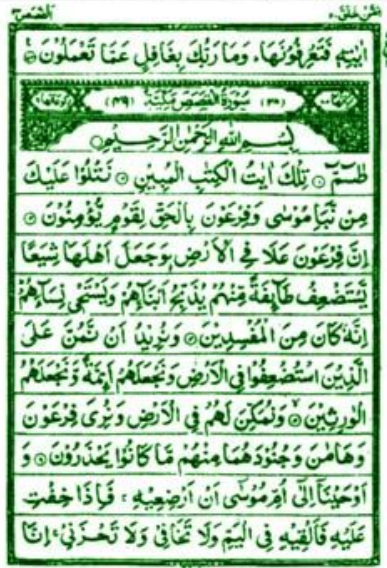 القصص ٢٨
امّن خلق ٢٠
اٰيٰتِهٖ فَتَعْرِفُوْنَهَا ؕ وَمَا رَبُّكَ بِغَافِلٍ عَمَّا تَعْمَلُوْنَ
سُوْرَةُ الْقَصَصِ مَكِّيَّةٌ (٤٩)
بِسْمِ اللّٰهِ الرَّحْمٰنِ الرَّحِيْمِ
طٰسٓمّٓ ۝۱ تِلْكَ اٰيٰتُ الْكِتٰبِ الْمُبِيْنِ ۝۲ نَتْلُوْا عَلَيْكَ
مِنْ نَّبَاِ مُوْسٰى وَفِرْعَوْنَ بِالْحَقِّ لِقَوْمٍ يُّؤْمِنُوْنَ ۝۳
اِنَّ فِرْعَوْنَ عَلَا فِى الْاَرْضِ وَجَعَلَ اَهْلَهَا شِيَعًا
يَّسْتَضْعِفُ طَآئِفَةً مِّنْهُمْ يُذَبِّحُ اَبْنَآءَهُمْ وَيَسْتَحْىٖ نِسَآءَهُمْ
اِنَّهٗ كَانَ مِنَ الْمُفْسِدِيْنَ ۝۴ وَنُرِيْدُ اَنْ نَّمُنَّ عَلَى
الَّذِيْنَ اسْتُضْعِفُوْا فِى الْاَرْضِ وَنَجْعَلَهُمْ اَئِمَّةً وَّنَجْعَلَهُمُ
الْوٰرِثِيْنَ ۝۵ وَنُمَكِّنَ لَهُمْ فِى الْاَرْضِ وَنُرِىَ فِرْعَوْنَ
وَهَامٰنَ وَجُنُوْدَهُمَا مِنْهُمْ مَّا كَانُوْا يَحْذَرُوْنَ ۝۶ وَ
اَوْحَيْنَآ اِلٰٓى اُمِّ مُوْسٰٓى اَنْ اَرْضِعِيْهِ ۚ فَاِذَا خِفْتِ
عَلَيْهِ فَاَلْقِيْهِ فِى الْيَمِّ وَلَا تَخَافِىْ وَلَا تَحْزَنِىْ ۚ اِنَّا